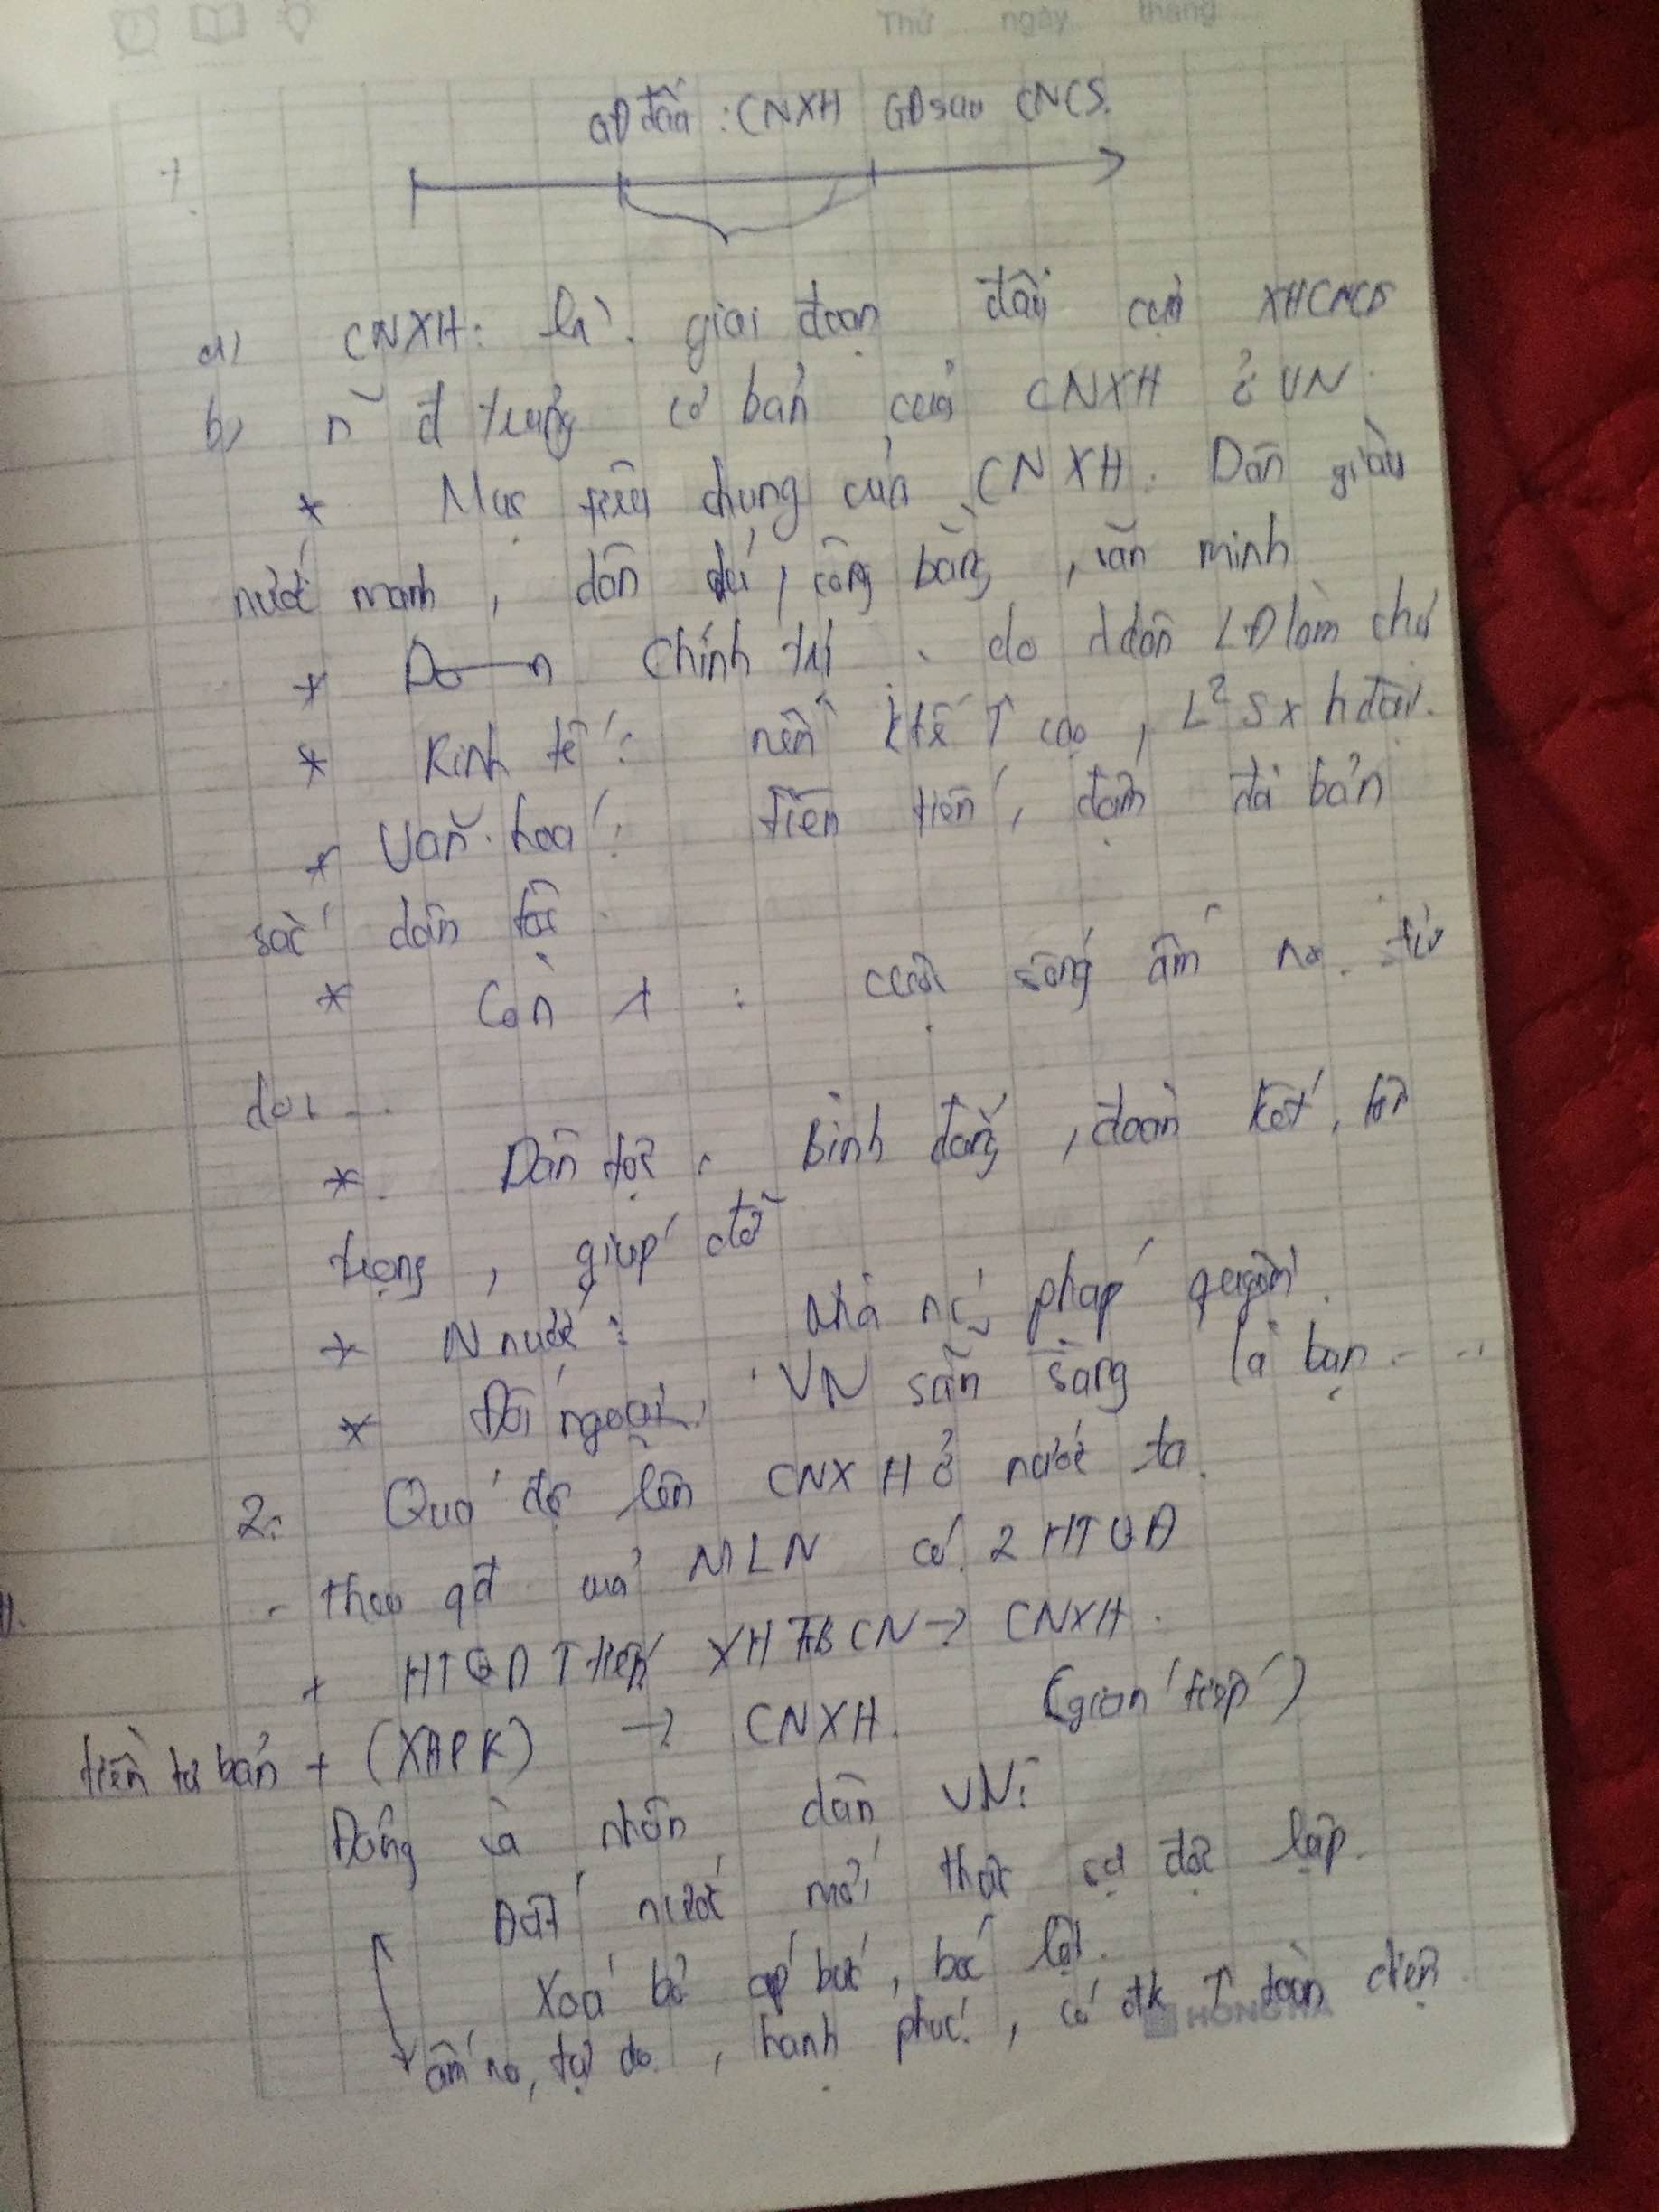 Thứ ngày tháng
GĐ đầu : CNXH GĐ sau CNCS.
1.
a) CNXH: là giai đoạn đầu của XHCNCS
b) n~ đ trưng cơ bản của CNXH ở VN.
* Mục tiêu chung của CNXH: Dân giàu
nước mạnh, dân chủ, công bằng, văn minh
* Chính trị: do dân LĐ làm chủ
* Kinh tế: nền ktế ↑ cao, L² SX hđại.
* Văn hoá: tiên tiến, đậm đà bản
sắc dân tộc.
* Con : cuộc sống ấm no tự
do, ...
* Dân tộc: Bình đẳng, đoàn kết, tôn
trọng, giúp đỡ
* N nước: Nhà pháp quyền.
* Đối ngoại: VN sẵn sàng là bạn ...
2. Quá độ lên CNXH ở nước ta.
- theo qđ của MLN có 2 HTQĐ
+ HTQĐ T tiếp XHTBCN → CNXH.
tiền tư bản + (XHPK) → CNXH. (gián tiếp)
Đảng và nhân dân VN:
Đất nước mới thực sự độc lập.
Xoá bỏ áp bức, bóc lột.
ấm no, tự do, hạnh phúc, có đk ↑ toàn diện
HONG HA